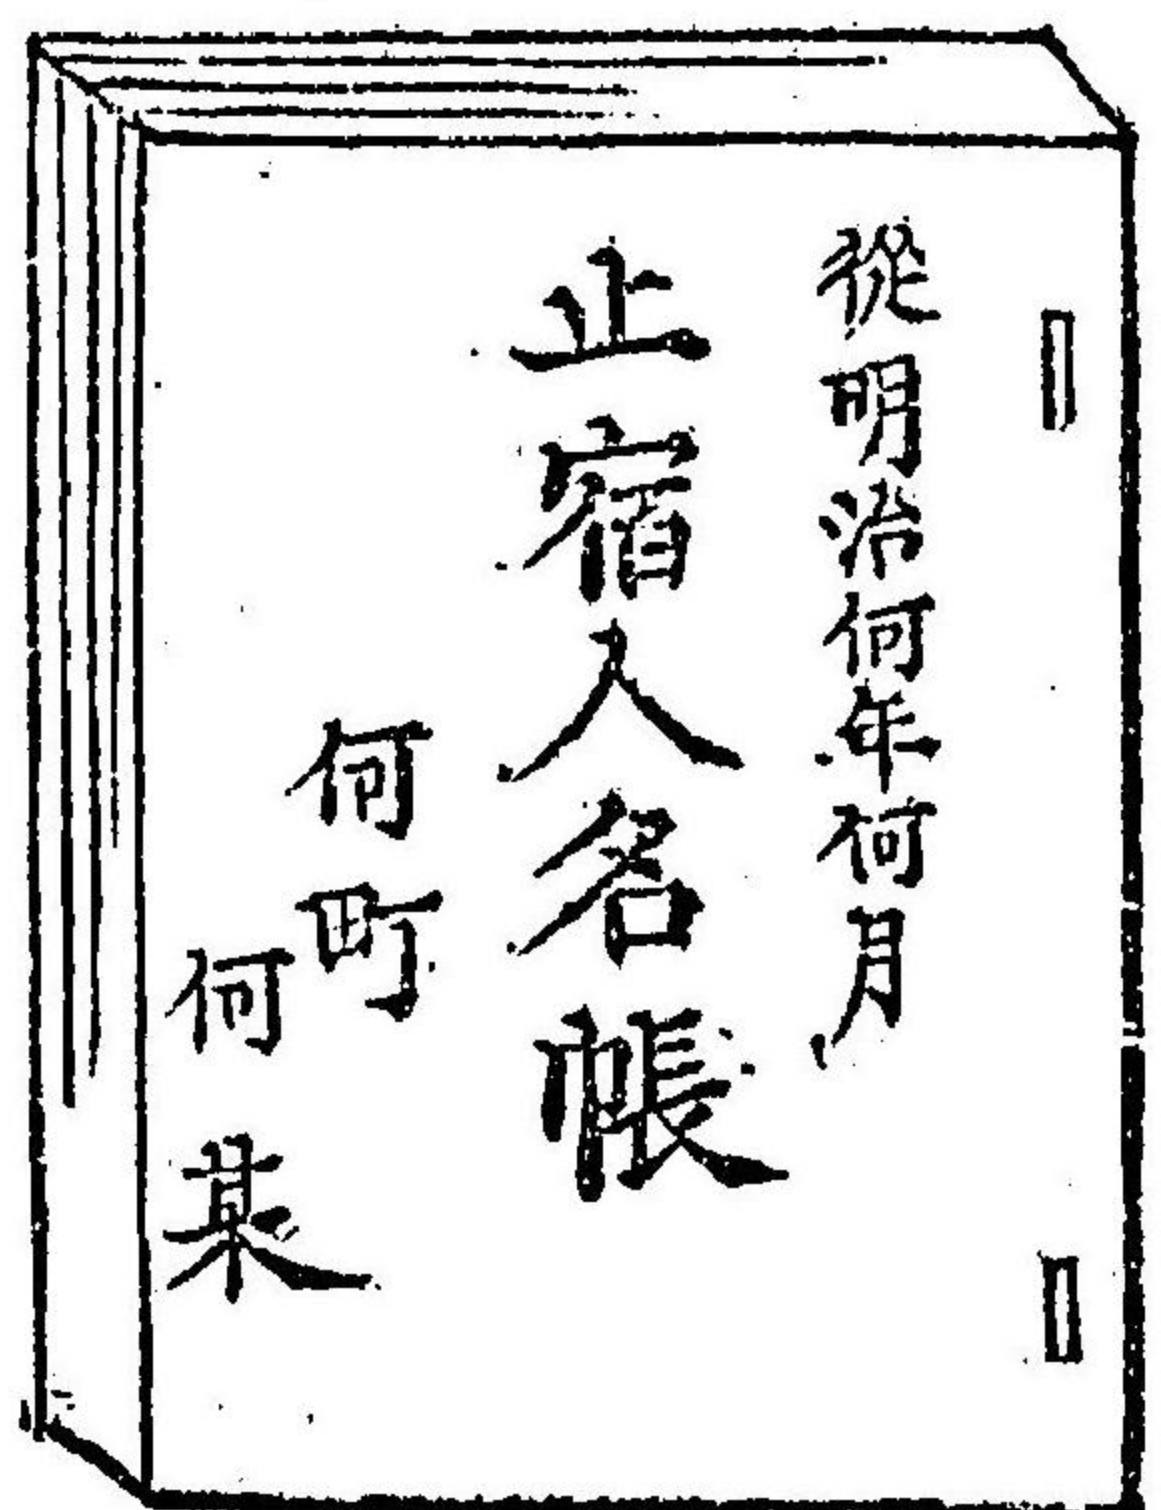 從明治何年何月
止宿人名帳
何町
何某